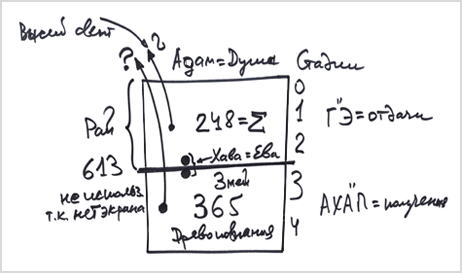 Высший свет
? ?
Адам = Душа Стадии
0
Рай 248 = Σ 1 Г"Э = отдачи
2
Хава = Ева
613
Змей 3
не использ.
т.к. нет экрана 365 АХА"П = получение
4
Древо познания